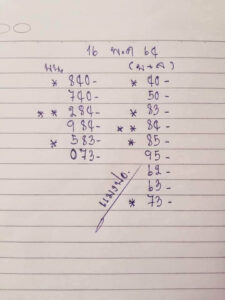 16 พ.ค 64
บน (บ+ล)
* 840- * 40-
740- 50-
** 284- * 83-
984- ** 84-
* 583- * 85-
073- 95-
62-
63-
* 73-